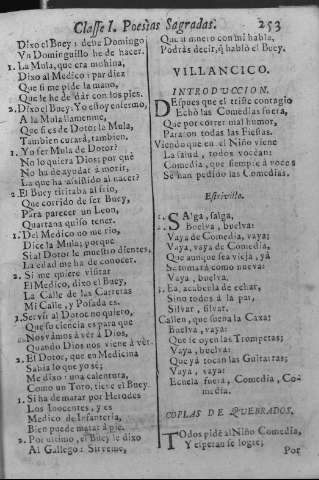 Classe I. Poesias Sagradas. 253
Dixo el Buey: deste Domingo
Un Dominguillo he de hacer.
1. La Mula, que era mohina,
Dixo al Medico: par diez
Que si me pide la mano,
Que le he de dàr con los pies.
2. Dixo el Buey: Yo estoy enfermo,
A la Mula llamenme,
Que si es de Dotor la Mula,
Tambien curarà, tambien.
1. Yo ser Mula de Dotor?
No lo quiera Dios; por què
No ha de ayudar à morir,
La que ha assistido al nacer?
2. El Buey tiritaba al frio,
Que corrido de ser Buey,
Para parecer un Leon,
Quartana quiso tener.
1. Del Medico no me rio,
Dice la Mula; porque
Si al Dotor le muestro dientes,
La edad me ha de conocer.
2. Si me quiere visitar
El Medico, dixo el Buey,
La Calle de las Carretas
Mi Calle, y Posada es.
1. Servir al Dotor no quiero,
Que su ciencia es para que
Nos vamos à vèr à Dios,
Quando Dios nos viene à vèr.
2. El Dotor, que en Medicina
Sabia lo que yo sè;
Me dixo: una calentura,
Como un Toro, tiene el Buey.
1. Si ha de matar por Herodes
Los Inocentes, y es
Medico de Infanteria,
Bien puede matar à pie.
2. Por ultimo, el Buey le dixo
Al Gallego: Sirveme,
Que à dinero con mi habla,
Podràs decir, què hablò el Buey.
VILLANCICO.
INTRODUCCION.
DEspues que el triste contagio
Echò las Comedias fuera,
Que por correr mal humor,
Pararon todas las Fiestas.
Viendo que en el Niño viene
La salud, todos vocean:
Comedia, que siempre à voces
Se han pedido las Comedias.
Estrivillo.
1. SAlga, salga,
2. Buelva, buelva:
Vaya de Comedia, vaya;
Vaya, vaya de Comedia,
Que aunque sea vieja, yà
Se tomarà como nueva:
Vaya, buelva.
1. Ea, acabeula de echar,
Sino todos à la par,
Silvar, silvar.
Callen, que suena la Caxa:
Buelva, vaya:
Que se oyen las Trompetas;
Vaya, buelva:
Que yà tocan las Guitarras;
Vaya, vaya:
Escuela fuera, Comedia, Comedia.
COPLAS DE QUEBRADOS.
TOdos pide al Niño Comedia,
Y esperan se logre;
Por